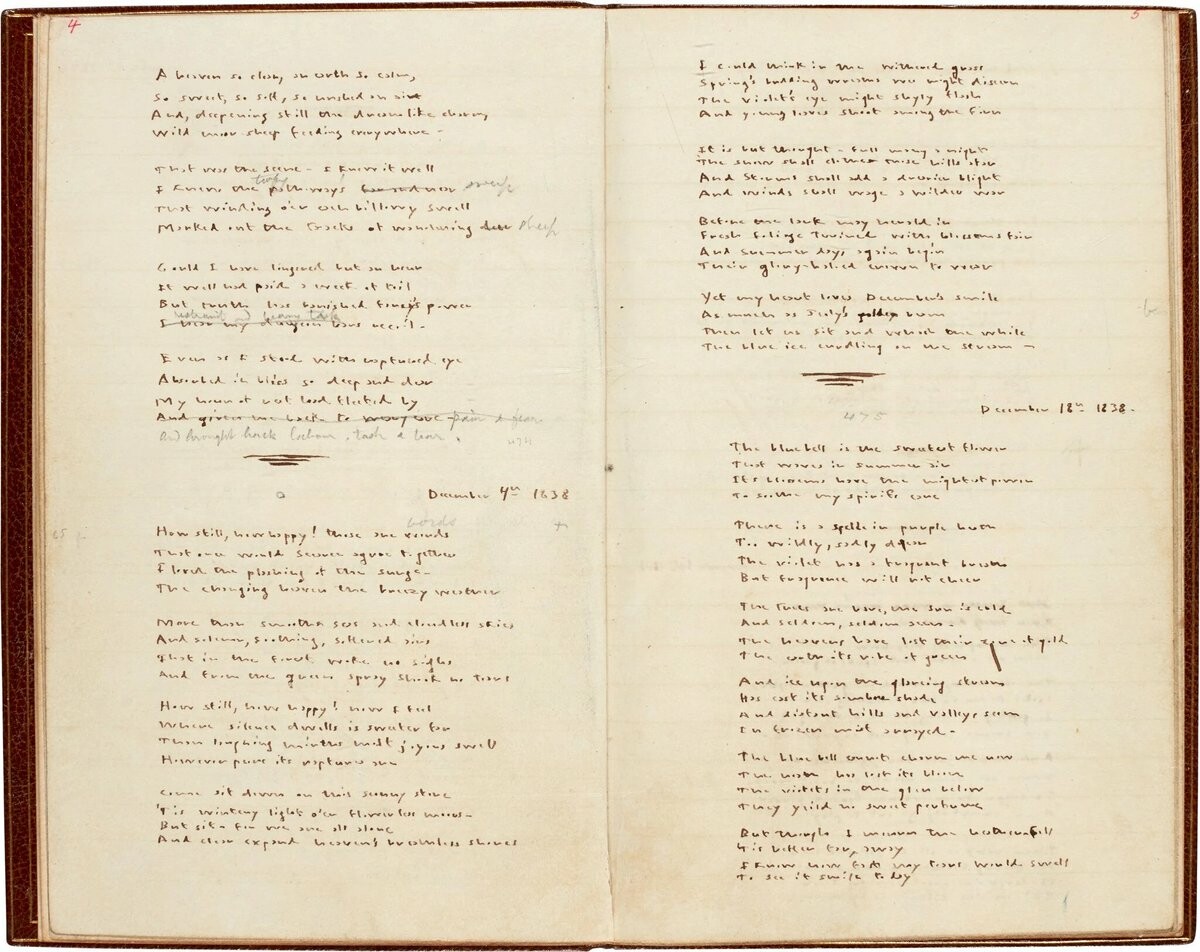 4
A heaven so clear, an earth so calm,
So sweet, so soft, so hushed an air
And, deepening still the dreamlike charm,
Wild moor-sheep feeding everywhere -
That was the scene - I knew it well
I knew the path-ways far and near
That winding o'er each billowy swell
Marked out the tracks of wandering deer sheep
Could I have lingered but an hour
It well had paid a week of toil
But truth has banished fancy's power
restraint and heavy task
I hear my dungeon bars recoil -
Even as I stood with raptured eye
Absorbed in bliss so deep and dear
My hour of rest had fleeted by
And given me back to weary care - pain & fear
And brought back labour, task & care.
December 4th 1838
words
How still, how happy! those are words
That once would scarce agree together
I loved the plashing of the surge -
The changing heaven the breezy weather
More than smooth seas and cloudless skies
And solemn, soothing, softened airs
That in the forest woke no sighs
And from the green spray shook no tears
How still, how happy! now I feel
Where silence dwells is sweeter far
Than laughing mirth's most joyous swell
However pure its raptures are
Come sit down on this sunny stone
'Tis wintery light o'er flowerless moors -
But sit - for we are all alone
And clear expand heaven's breathless shores
5
I could think in the withered grass
Spring's budding wreaths we might discern
The violet's eye might shyly flash
And young leaves shoot among the fern
It is but thought - full many a night
The snow shall clothe those hills afar
And storms shall add a drearier blight
And winds shall wage a wilder war
Before the lark may herald in
Fresh foliage twined with blossoms fair
And summer days again begin
Their glory-haloed crown to wear
Yet my heart loves December's smile
As much as July's golden beam
Then let us sit and watch the while
The blue ice curdling on the stream -
475
December 18th 1838.
The bluebell is the sweetest flower
That waves in summer air
Its blossoms have the mightiest power
To soothe my spirit's care
There is a spell in purple heath
Too wildly, sadly dear
The violet has a fragrant breath
But fragrance will not cheer
The trees are bare, the sun is cold
And seldom, seldom seen -
The heavens have lost their zone of gold
The earth its robe of green
And ice upon the glancing stream
Has cast its sombre shade
And distant hills and valleys seem
In frozen mist arrayed -
The blue bell cannot charm me now
The heath has lost its bloom
The violets in the glen below
They yield no sweet perfume
But though I mourn the heather-bell
'Tis better far, away
I know how fast my tears would swell
To see it smile to day